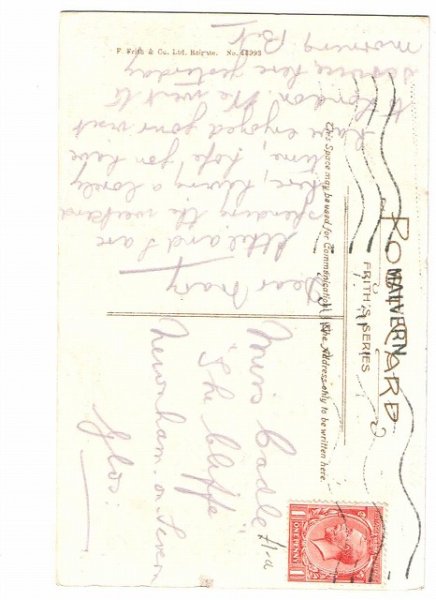 POST CARD
FRITH'S SERIES
MALVERN
This Space may be used for Communication
The Address only to be written here.
F. Frith & Co. Ltd. Reigate. No.
Dear Mary
and I are
spending the weekend
here, having a lovely
time, hope you have
have enjoyed your visit
to London. We went to
service here yesterday
morning
Miss Cadle
"The Cliffe"
Newnham-on-Severn
Glos:
ONE PENNY